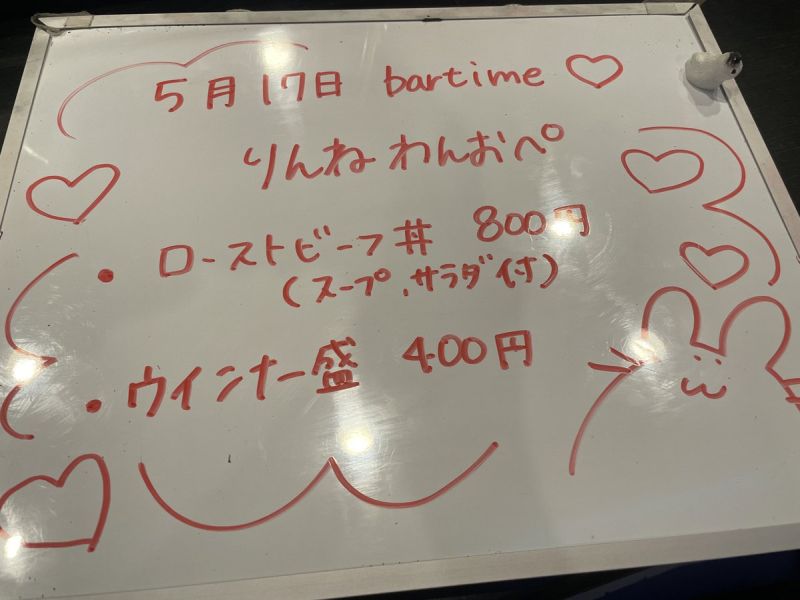 5月17日 bartime ♡
りんね わんおぺ
• ローストビーフ丼 800円
(スープ、サラダ付)
• ウインナー盛 400円